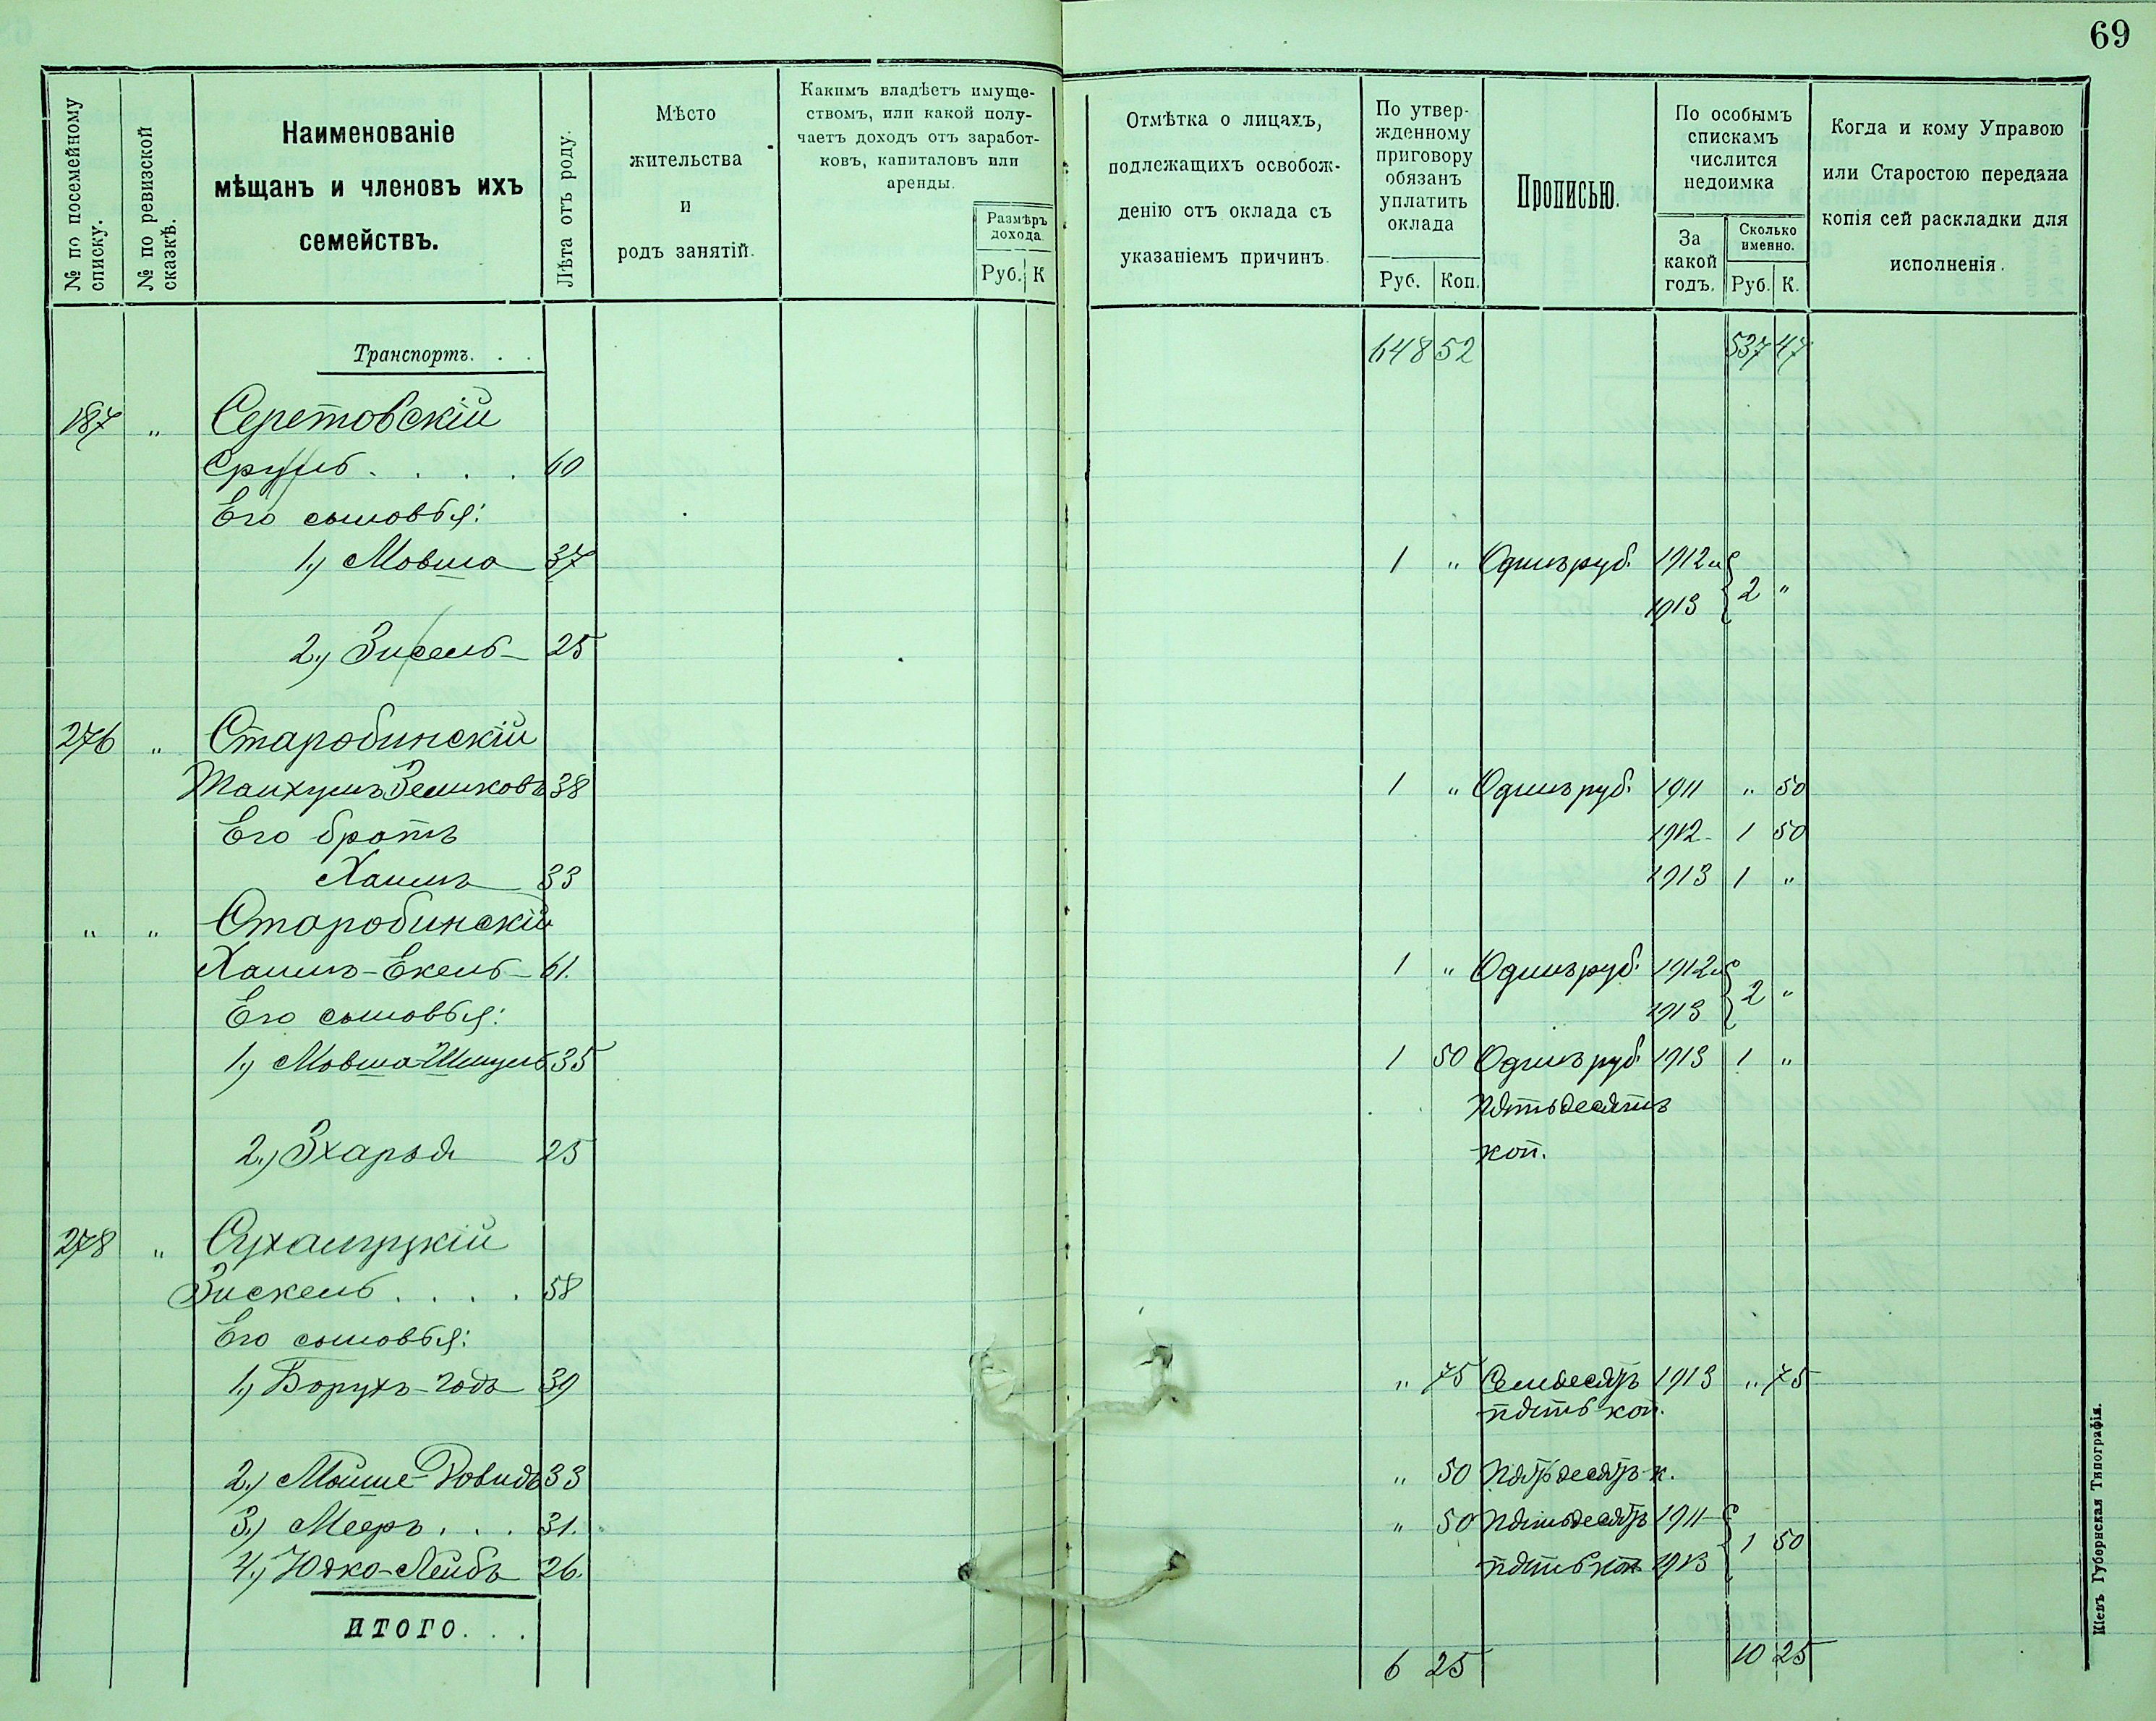 69
№ по посемейному списку.
№ по ревизской сказкѣ.
Наименованіе
мѣщанъ и членовъ ихъ
семействъ.
Лѣта отъ роду.
Мѣсто
жительства
и
родъ занятій.
Какимъ владѣетъ имуще-
ствомъ, или какой полу-
чаетъ доходъ отъ заработ-
ковъ, капиталовъ или
аренды.
Размѣръ
дохода.
Руб. К
Отмѣтка о лицахъ,
подлежащихъ освобож-
денію отъ оклада съ
указаніемъ причинъ.
По утвер-
жденному
приговору
обязанъ
уплатить
оклада
Руб. Коп.
Прописью.
По особымъ
спискамъ
числится
недоимка
За
какой
годъ.
Сколько
именно.
Руб. К.
Когда и кому Управою
или Старостою передана
копія сей раскладки для
исполненія.
Транспортъ. . . 648 52 537 47
187 " Серетовскій
Сруль . . . . 60
Его сыновья:
1,) Мовша 37 1 " Одинъ руб. 1912 и
1913 2 "
2,) Зисель 25
276 " Старобинскій
Танхумъ Зеликовъ 38 1 " Одинъ руб. 1911 " 50
Его братъ 1912 1 50
Хаимъ 33 1913 1 "
" " Старобинскій
Хаимъ-Екель 61. 1 " Одинъ руб. 1912 и
Его сыновья: 1913 2 "
1,) Мовша-Шмуль 35 1 50 Одинъ руб. 1913 1 "
пятьдесятъ
2,) Зхарья 25 коп.
278 " Сухалуцкій
Зискель . . . . 58
Его сыновья:
1,) Борухъ-Годъ 39 " 75 Семьдесятъ 1913 " 75
пять коп.
2,) Мойше-Довидъ 33 " 50 Пятьдесятъ к.
3,) Мееръ . . . 31. " 50 Пятьдесятъ 1911
4,) Юдко-Лейбъ 26. пять коп. 1913 1 50
ИТОГО. . . 6 25 10 25
Кіевъ Губернская Типографія.